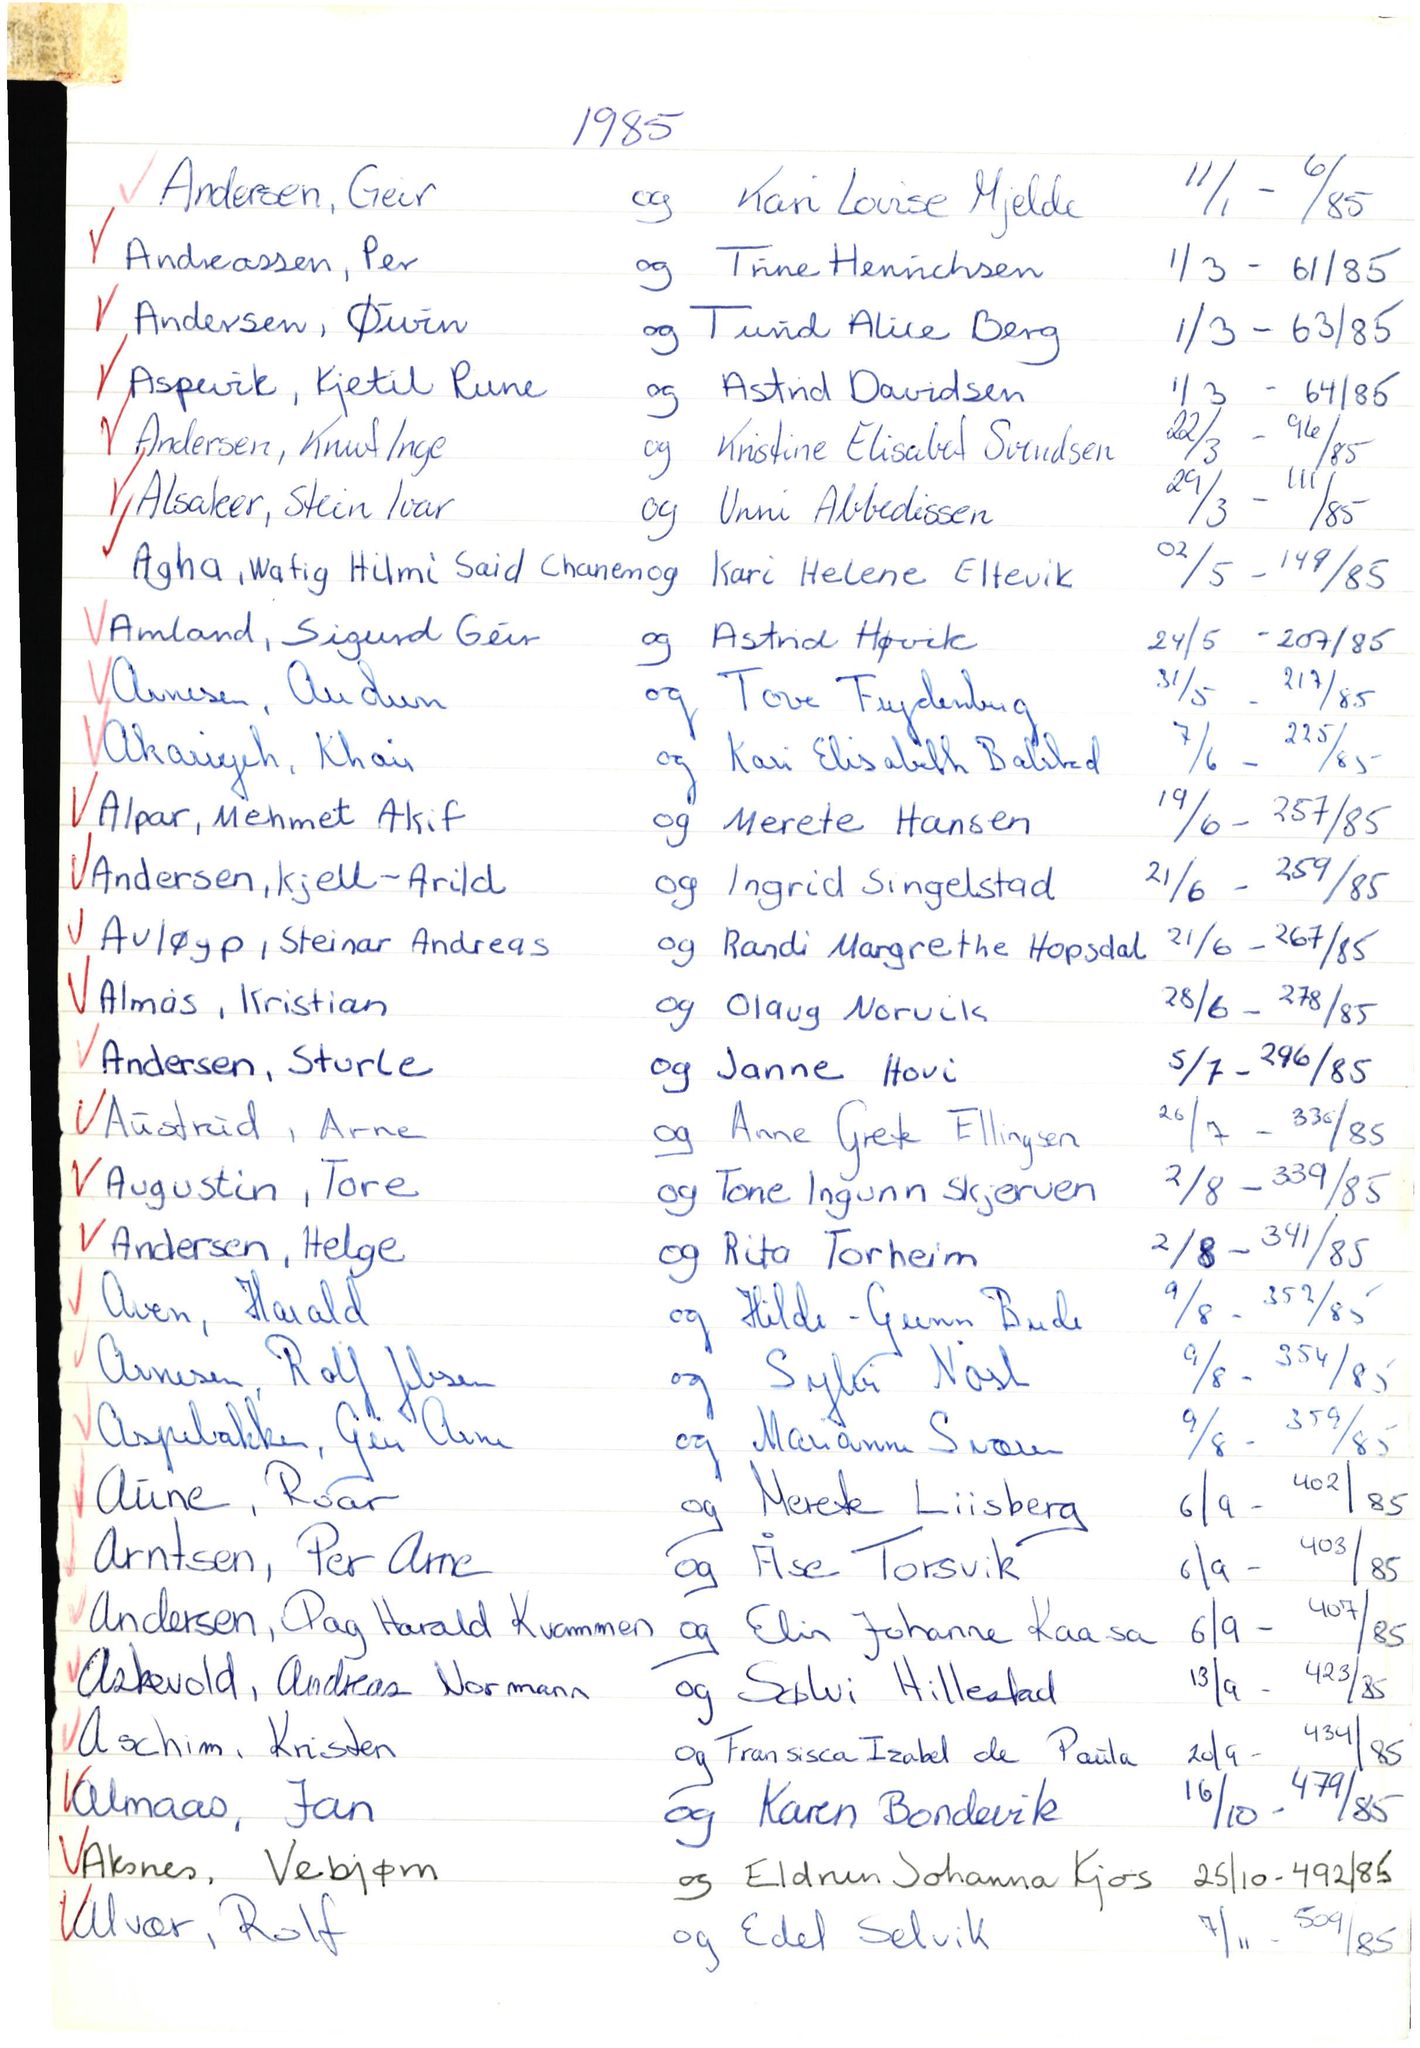 1985
Andersen, Geir og Kari Louise Mjelde 11/1 - 6/85
Andreassen, Per og Trine Henrichsen 1/3 - 61/85
Andersen, Øivin og Turid Alice Berg 1/3 - 63/85
Aspevik, Kjetil Rune og Astrid Davidsen 1/3 - 64/85
Andersen, Knut Inge og Kristine Elisabet Svendsen 22/3 - 96/85
Alsaker, Stein Ivar og Unni Abbedissen 29/3 - 111/85
Agha, Wafig Hilmi Said Chanem og Kari Helene Eltevik 02/5 - 149/85
Amland, Sigurd Geir og Astrid Høvik 24/5 - 207/85
Arnesen, Audun og Tove Frydenbug 31/5 - 217/85
Akariyeh, Khair og Kari Elisabeth Balstad 7/6 - 225/85
Alpar, Mehmet Akif og Merete Hansen 19/6 - 257/85
Andersen, Kjell-Arild og Ingrid Singelstad 21/6 - 259/85
Avløyp, Steinar Andreas og Randi Margrethe Hopsdal 21/6 - 267/85
Almås, Kristian og Olaug Norvik 28/6 - 278/85
Andersen, Sturle og Janne Hovi 5/7 - 296/85
Austrud, Arne og Anne Grete Ellingsen 26/7 - 336/85
Augustin, Tore og Tone Ingunn Skjerven 2/8 - 339/85
Andersen, Helge og Rita Torheim 2/8 - 341/85
Aven, Harald og Hilde-Gunn Bude 9/8 - 352/85
Arnesen, Rolf Jebsen og Sylvi Nøsl 9/8 - 354/85
Aspebakken, Geir Arne og Marianne Svoren 9/8 - 359/85
Aune, Roar og Merete Liisberg 6/9 - 402/85
Arntsen, Per Arne og Åse Torsvik 6/9 - 403/85
Andersen, Dag Harald Kvammen og Elin Johanne Kaasa 6/9 - 407/85
Askevold, Andreas Normann og Sølvi Hillestad 13/9 - 423/85
Aschim, Kristen og Fransisca Izabel de Paula 20/9 - 434/85
Almaas, Jan og Karen Bondevik 16/10 - 479/85
Aksnes, Vebjørn og Eldrun Johanna Kjos 25/10 - 492/85
Alvær, Rolf og Edel Selvik 7/11 - 509/85